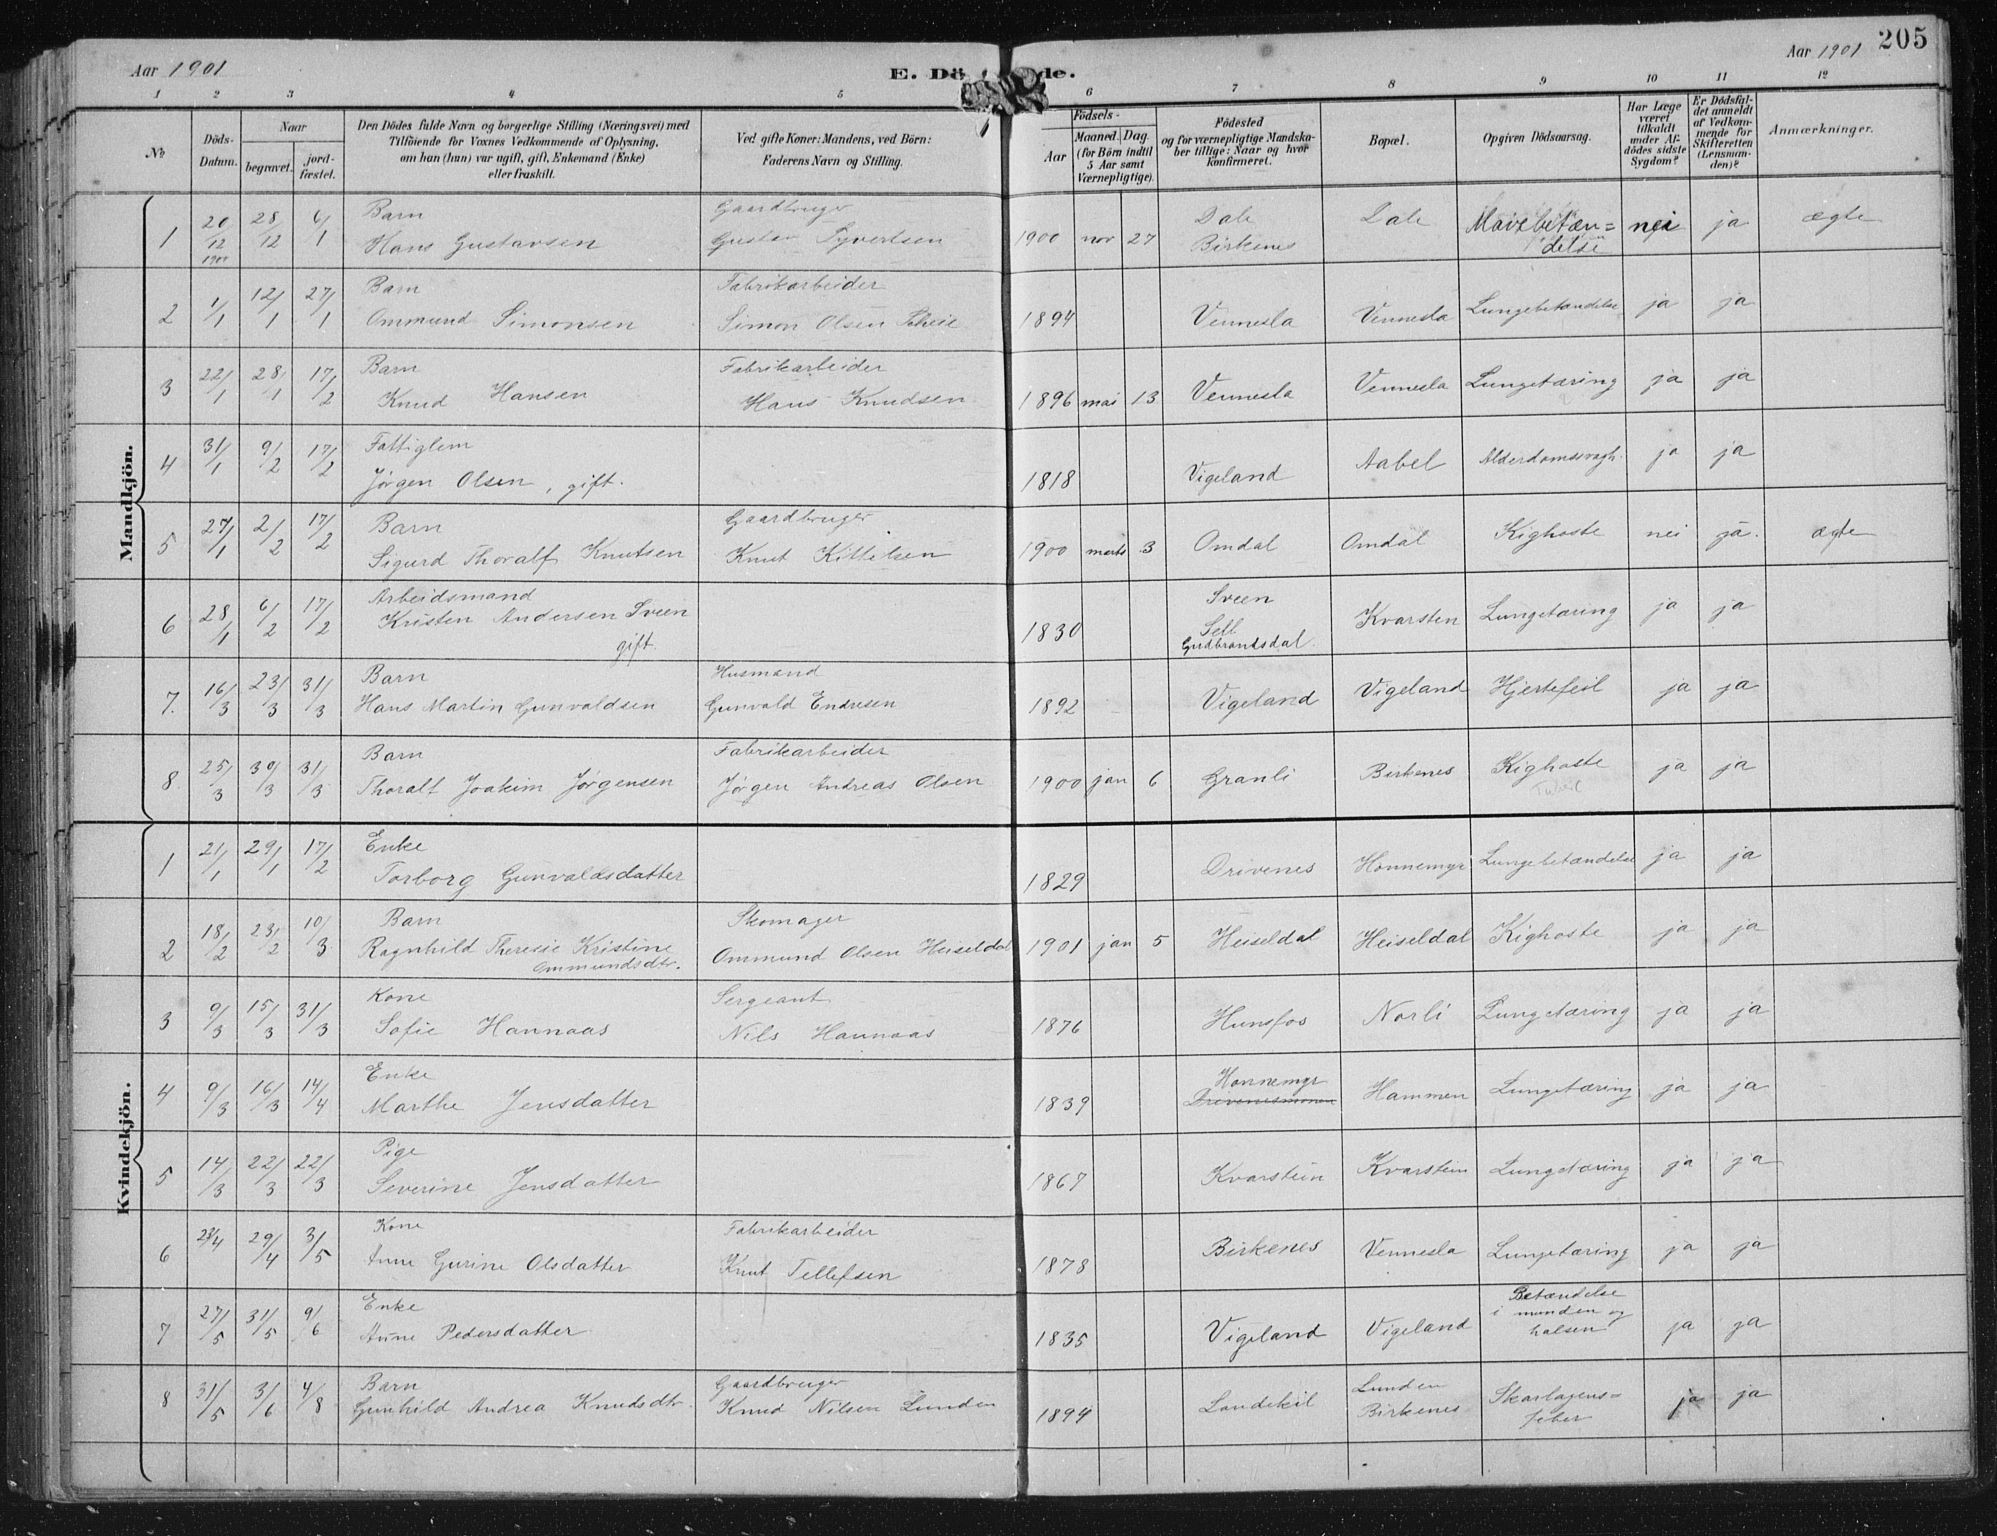 Aar 1901
E. Dö de.
Aar 1901
205
1 2 3 4 5 6 7 8 9 10 11 12
No
Döds-Datum.
Naar
begravet.
jord-fæstet.
Den Dödes fulde Navn og borgerlige Stilling (Næringsvei) med
Tilföiende for Voxnes Vedkommende af Oplysning,
om han (hun) var ugift, gift, Enkemand (Enke)
eller fraskilt.
Ved gifte Koner: Mandens, ved Börn:
Faderens Navn og Stilling.
Födsels-
Aar
Maaned. Dag.
(for Börn indtil
5 Aar samt
Værnepligtige).
Födested
og for værnepligtige Mandska-
ber tillige: Naar og hvor
konfirmeret.
Bopæl.
Opgiven Dödsaarsag.
Har Læge
været
tilkaldt
under Af-
dödes sidste
Sygdom?
Er Dödsfal-
det anmeldt
af Vedkom-
mende for
Skifteretten
(Lensman-
den)?
Anmærkninger.
Mandkjön.
1 20/12 1900 28/12 6/1 Barn Gaardbruger Dale Dale Mavebetæn= nei ja ægte
Hans Gustavsen Gustav Syvertsen 1900 nov 27 Birkenes delse
2 1/1 12/1 27/1 Barn Fabrikarbeider
Ommund Simonsen Simon Olsen 1894 Vennesla Vennesla Lungebetændelse ja ja
3 22/1 28/1 17/2 Barn Fabrikarbeider
Knud Hansen Hans Knudsen 1896 mai 13 Vennesla Vennesla Lungetæring ja ja
4 31/1 9/2 17/2 Fattiglem
Jørgen Olsen, gift. 1818 Vigeland Aabel Alderdomssvagh. ja ja
5 27/1 2/2 17/2 Barn Gaardbruger
Sigurd Thoralf Knutsen Knut Kittelsen 1900 marts 3 Omdal Omdal Kighoste nei ja. ægte
6 28/1 6/2 17/2 Arbeidsmand Sveen
Kristen Andersen Sveen 1830 Sell Kvarsten Lungetæring ja ja
gift. Gudbrandsdal.
7. 16/3 23/3 31/3 Barn Husmand
Hans Martin Gunvaldsen Gunvald Endresen 1892 Vigeland Vigeland Hjertefeil ja ja
8 25/3 30/3 31/3 Barn Fabrikarbeider
Thoralf Joakim Jørgensen Jørgen Andreas Olsen 1900 jan 6 Granli Birkenes Kighoste ja ja
Kvindekjön.
1 21/1 29/1 17/2 Enke
Torborg Gunvaldsdatter 1829 Drivenes Honnemyr Lungebetændelse ja ja
2 18/2 23/2 10/3 Barn Skomager
Ragnhild Theresie Kristine Ommund Olsen Heiseldal 1901 jan 5 Heiseldal Heiseldal Kighoste ja ja
Ommundsdtr.
3 9/3 15/3 31/3 Kone Sergeant
Sofie Hannaas Nils Hannaas 1876 Hunsfos Norli Lungetæring ja ja
4 9/3 16/3 14/4 Enke Honnemyr
Marthe Jensdatter 1839 Hammen Lungetæring ja ja
5 14/3 22/3 22/3 Pige
Severine Jensdatter 1867 Kvarstein Kvarstein Lungetæring ja ja
6 23/4 29/4 3/5 Kone Fabrikarbeider
Anne Gurine Olsdatter Knut Tellefsen 1878 Birkenes Vennesla Lungetæring ja ja
7 27/5 31/5 9/6 Enke Betændelse
Anne Pedersdatter 1835 Vigeland Vigeland i munden og halsen ja ja
8 31/5 3/6 4/8 Barn Gaardbruger Lunden Skarlagens= ja ja
Gunhild Andrea Knudsdtr. Knud Nilsen Lunden 1894 Landekil Birkenes feber